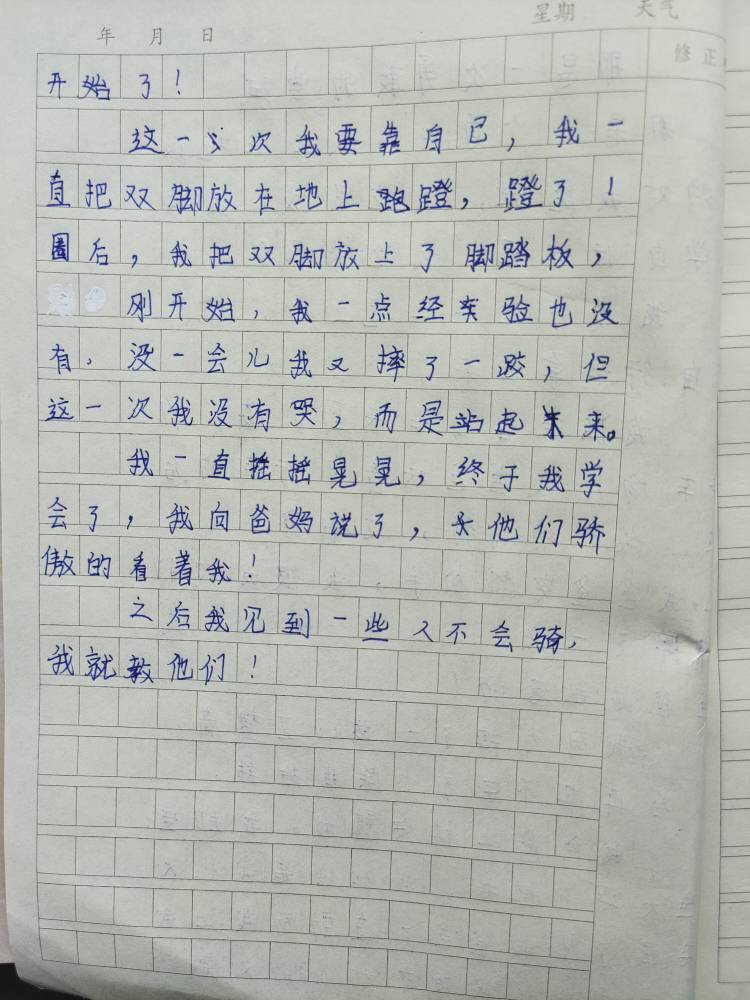 年 月 日 星期 天气
修正
开始了！
这一次我要靠自己，我一
直把双脚放在地上跑蹬，蹬了！
圈后，我把双脚放上了脚踏板，
刚开始，我一点经验也没
有，没一会儿我又摔了一跤，但
这一次我没有哭，而是站起来。
我一直摇摇晃晃，终于我学
会了，我向爸妈说了，他们骄
傲的看着我！
之后我见到一些人不会骑，
我就教他们！